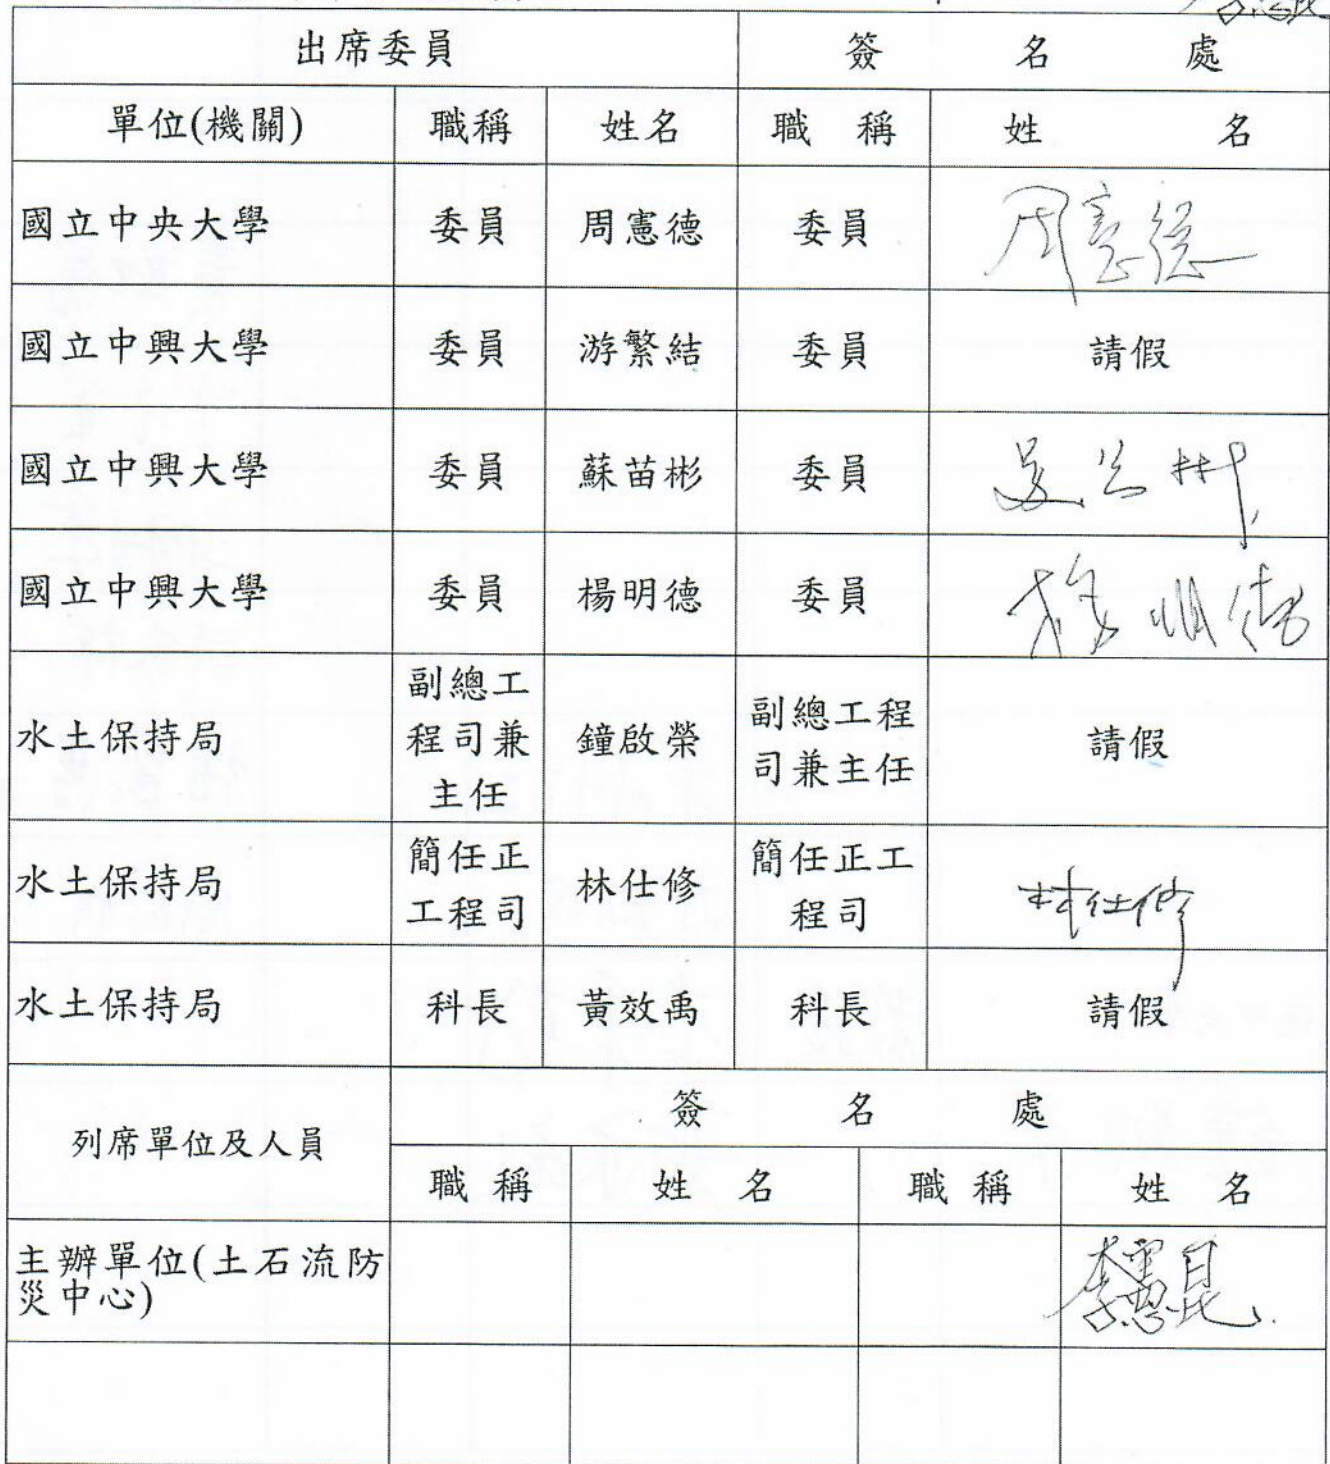 出席委員 簽名處
單位(機關) 職稱 姓名 職稱 姓名
國立中央大學 委員 周憲德 委員 周憲德
國立中興大學 委員 游繁結 委員 請假
國立中興大學 委員 蘇苗彬 委員
國立中興大學 委員 楊明德 委員 楊明德
水土保持局 副總工程司兼主任 鐘啟榮 副總工程司兼主任 請假
水土保持局 簡任正工程司 林仕修 簡任正工程司 林仕修
水土保持局 科長 黃效禹 科長 請假
列席單位及人員 簽名處
職稱 姓名 職稱 姓名
主辦單位(土石流防
災中心)